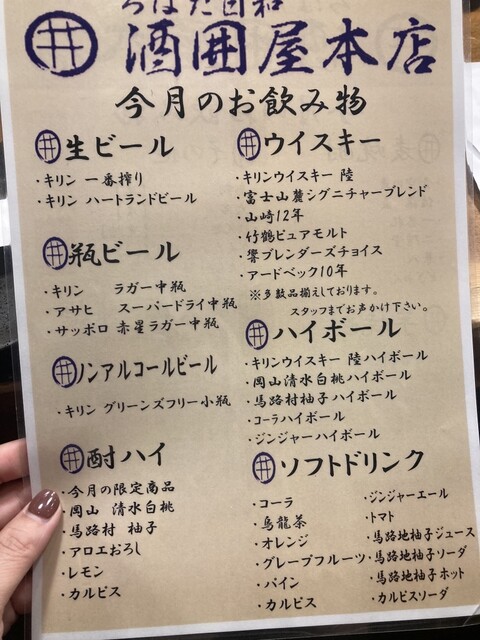 ろばた酉和
酒囲屋本店
今月のお飲み物
生ビール
・キリン 一番搾り
・キリン ハートランドビール
瓶ビール
・キリン ラガー中瓶
・アサヒ スーパードライ中瓶
・サッポロ 赤星ラガー中瓶
ノンアルコールビール
・キリン グリーンズフリー小瓶
酎ハイ
・今月の限定商品
・岡山 清水白桃
・馬路村 柚子
・アロエおろし
・レモン
・カルピス
ウイスキー
・キリンウイスキー 陸
・富士山麓シグニチャーブレンド
・山崎12年
・竹鶴ピュアモルト
・響ブレンダーズチョイス
・アードベック10年
※多数品揃えしております。
スタッフまでお声かけ下さい。
ハイボール
・キリンウイスキー 陸ハイボール
・岡山清水白桃ハイボール
・馬路村柚子ハイボール
・コーラハイボール
・ジンジャーハイボール
ソフトドリンク
・コーラ
・烏龍茶
・オレンジ
・グレープフルーツ
・パイン
・カルピス
・ジンジャーエール
・トマト
・馬路地柚子ジュース
・馬路地柚子ソーダ
・馬路地柚子ホット
・カルピスソーダ